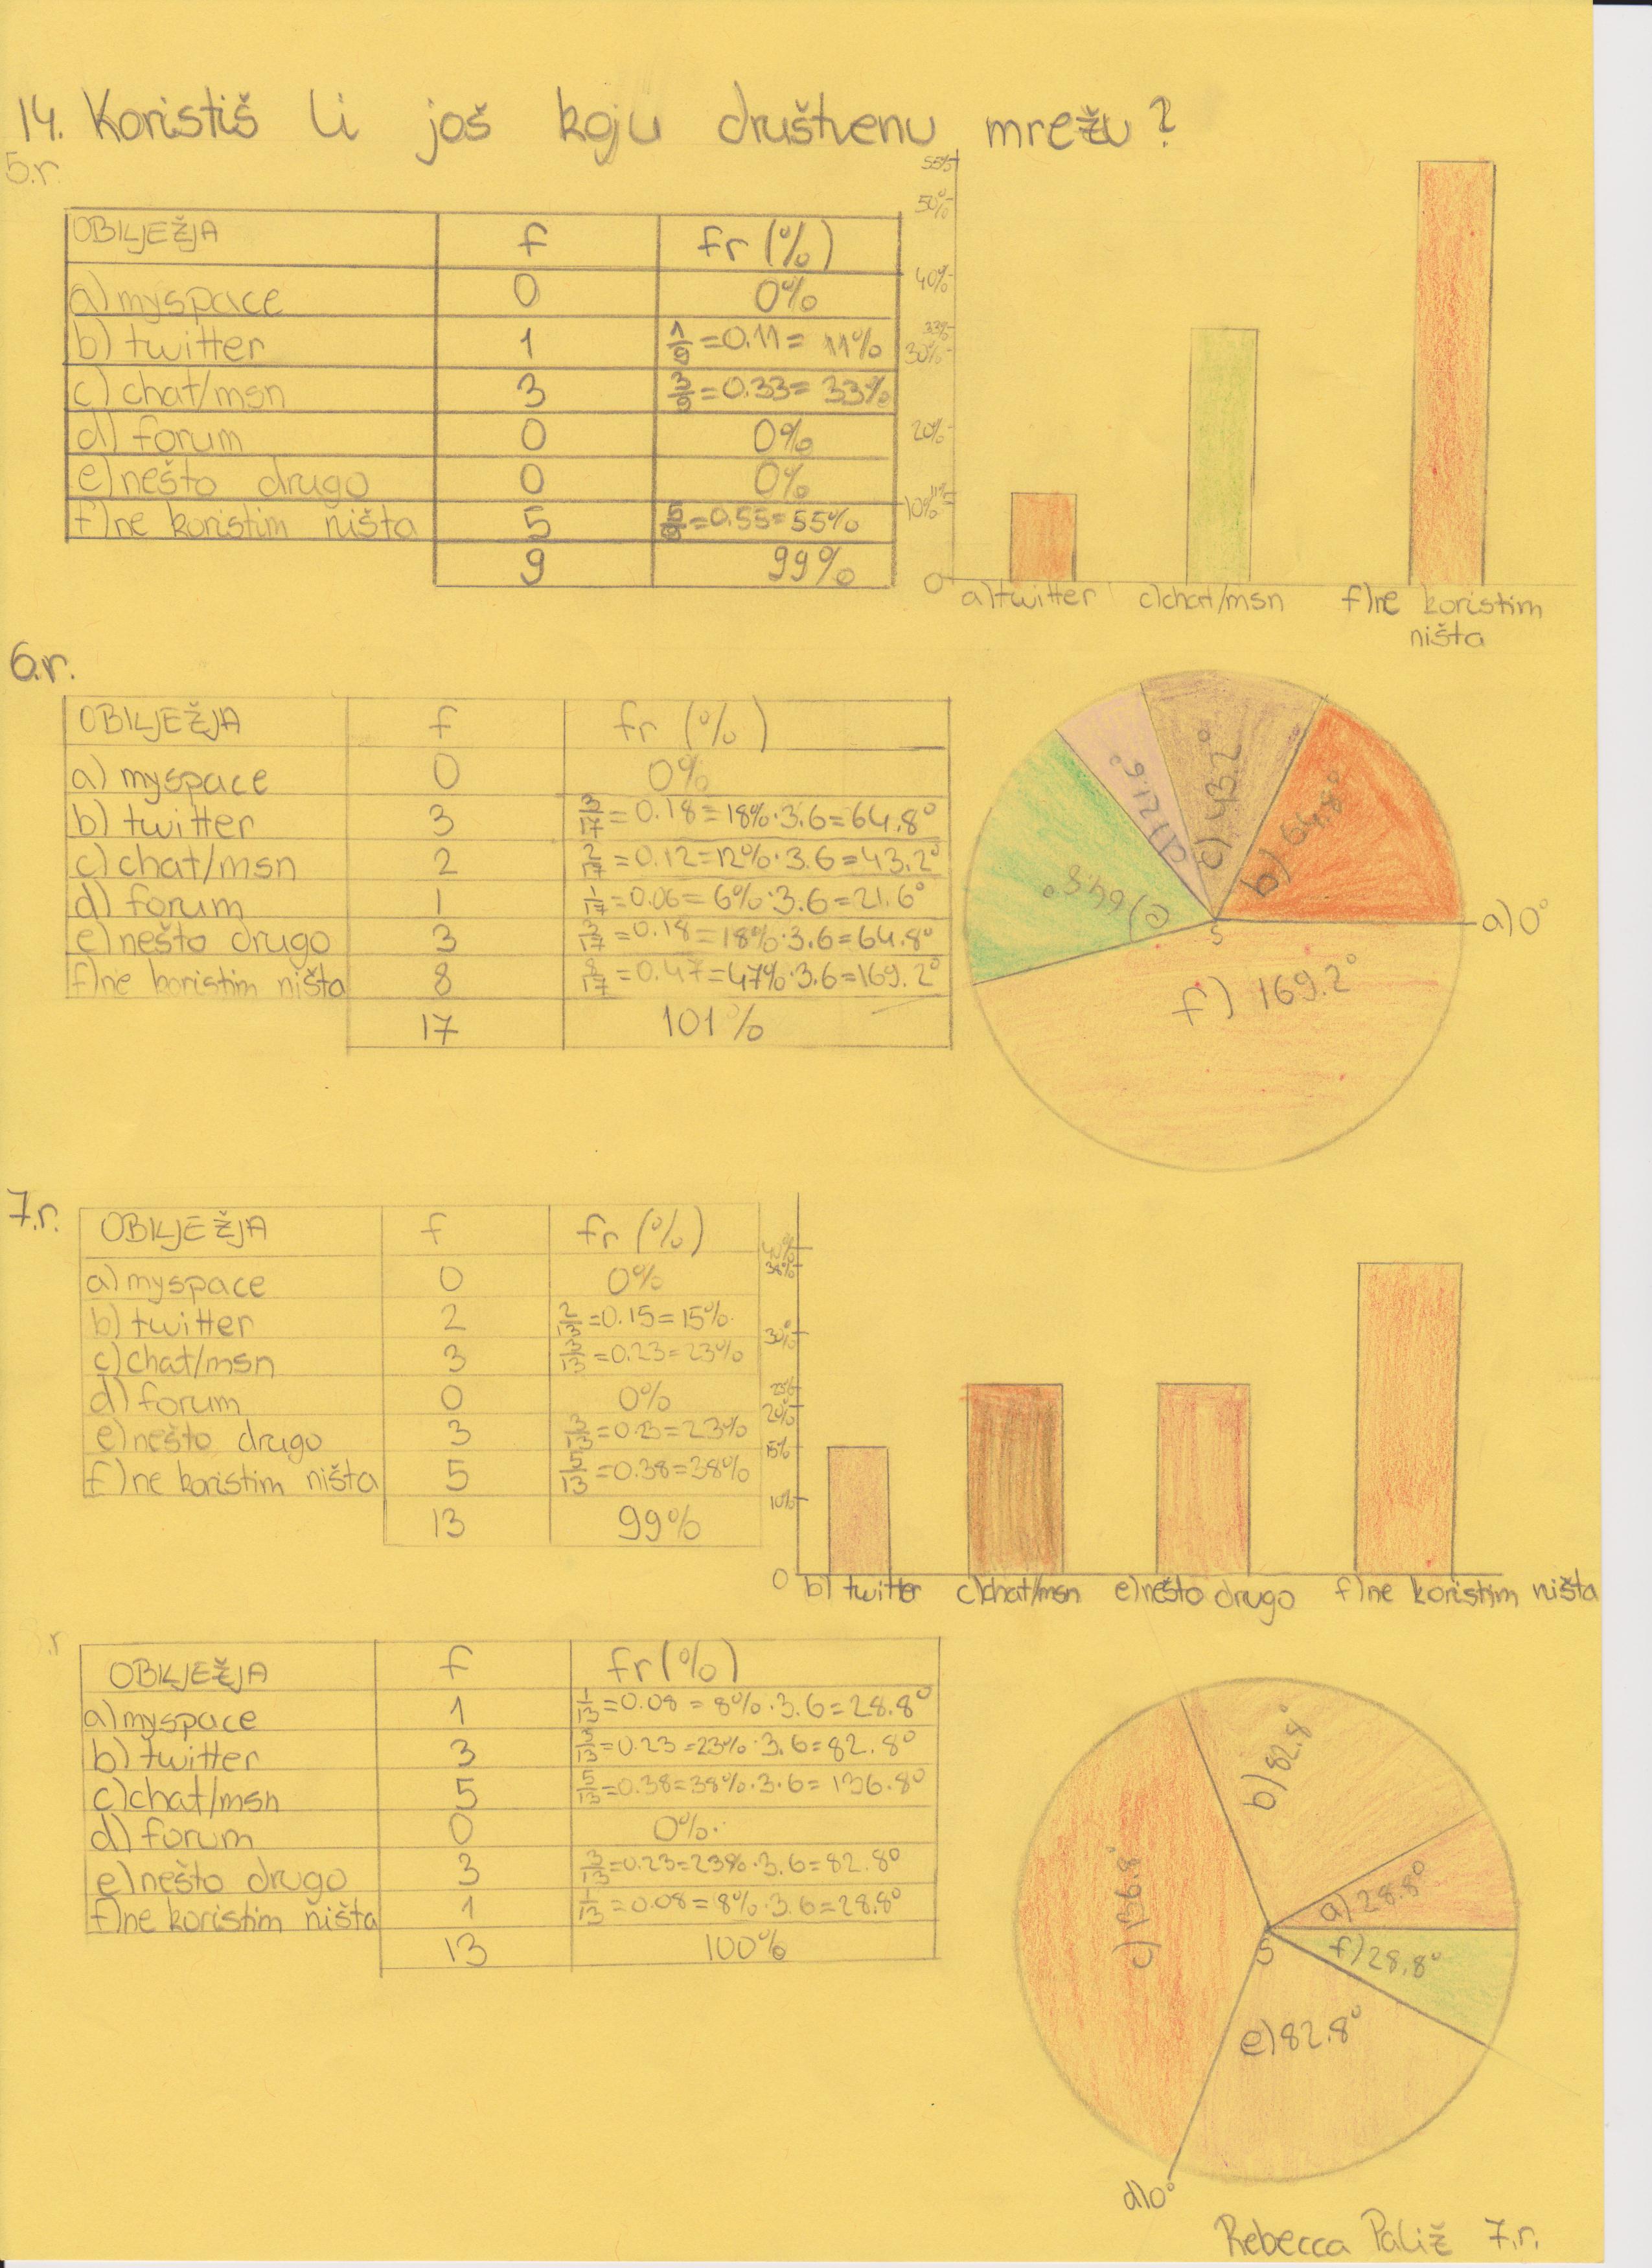 14. Koristiš li još koju društvenu mrežu?
5.r.
OBILJEŽJA f fr (%)
a) myspace 0 0%
b) twitter 1 1/9=0.11=11%
c) chat/msn 3 3/9=0.33=33%
d) forum 0 0%
e) nešto drugo 0 0%
f) ne koristim ništa 5 5/9=0.55=55%
9 99%
55%
50%
40%
33%
30%
20%
11%
10%
0
a) twitter c) chat/msn f) ne koristim
ništa
6.r.
OBILJEŽJA f fr (%)
a) myspace 0 0%
b) twitter 3 3/17=0.18=18%·3.6=64.8°
c) chat/msn 2 2/17=0.12=12%·3.6=43.2°
d) forum 1 1/17=0.06=6%·3.6=21.6°
e) nešto drugo 3 3/17=0.18=18%·3.6=64.8°
f) ne koristim ništa 8 8/17=0.47=47%·3.6=169.2°
17 101%
a) 0°
b) 64.8°
c) 43.2°
d) 21.6°
e) 64.8°
f) 169.2°
S
7.r.
OBILJEŽJA f fr (%)
a) myspace 0 0%
b) twitter 2 2/13=0.15=15%
c) chat/msn 3 3/13=0.23=23%
d) forum 0 0%
e) nešto drugo 3 3/13=0.23=23%
f) ne koristim ništa 5 5/13=0.38=38%
13 99%
40%
38%
30%
23%
20%
15%
10%
0
b) twitter c) chat/msn e) nešto drugo f) ne koristim ništa
8.r
OBILJEŽJA f fr (%)
a) myspace 1 1/13=0.08=8%·3.6=28.8°
b) twitter 3 3/13=0.23=23%·3.6=82.8°
c) chat/msn 5 5/13=0.38=38%·3.6=136.8°
d) forum 0 0%
e) nešto drugo 3 3/13=0.23=23%·3.6=82.8°
f) ne koristim ništa 1 1/13=0.08=8%·3.6=28.8°
13 100%
b) 82.8°
a) 28.8°
c) 136.8°
S
f) 28.8°
e) 82.8°
d) 0°
Rebecca Paliž 7.r.